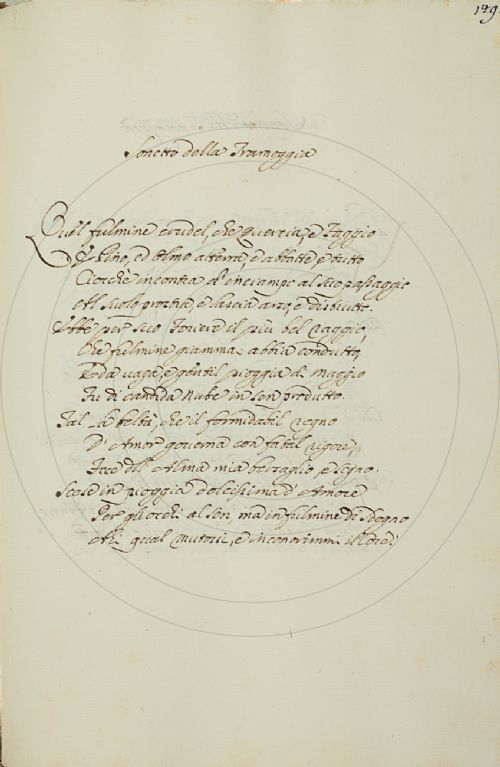 149
Sonetto della Tramoggia
Quel fulmine crudel, che Quercia, e Faggio
Pino, ed Olmo atterra, e abbatte e tutto
Ciocche incontra d'inciampo al suo passaggio
Al suolo e lascia arso, e distrutto.
Ebbe per suo Foriere il più bel raggio,
Che fulmine giammai abbia condutto,
E da vaga, e gentil pioggia di maggio
Fu di candida Nube in sen produtto.
Tal la beltà, che il formidabil regno
D'Amor governa con fatal rigore,
Fece dell'Alma mia bersaglio, e segno.
Scese in pioggia dolcissima d'Amore
Per gli occhi al sen, ma in fulmine di Sdegno
qual mutossi, e incenerimmi il Core!